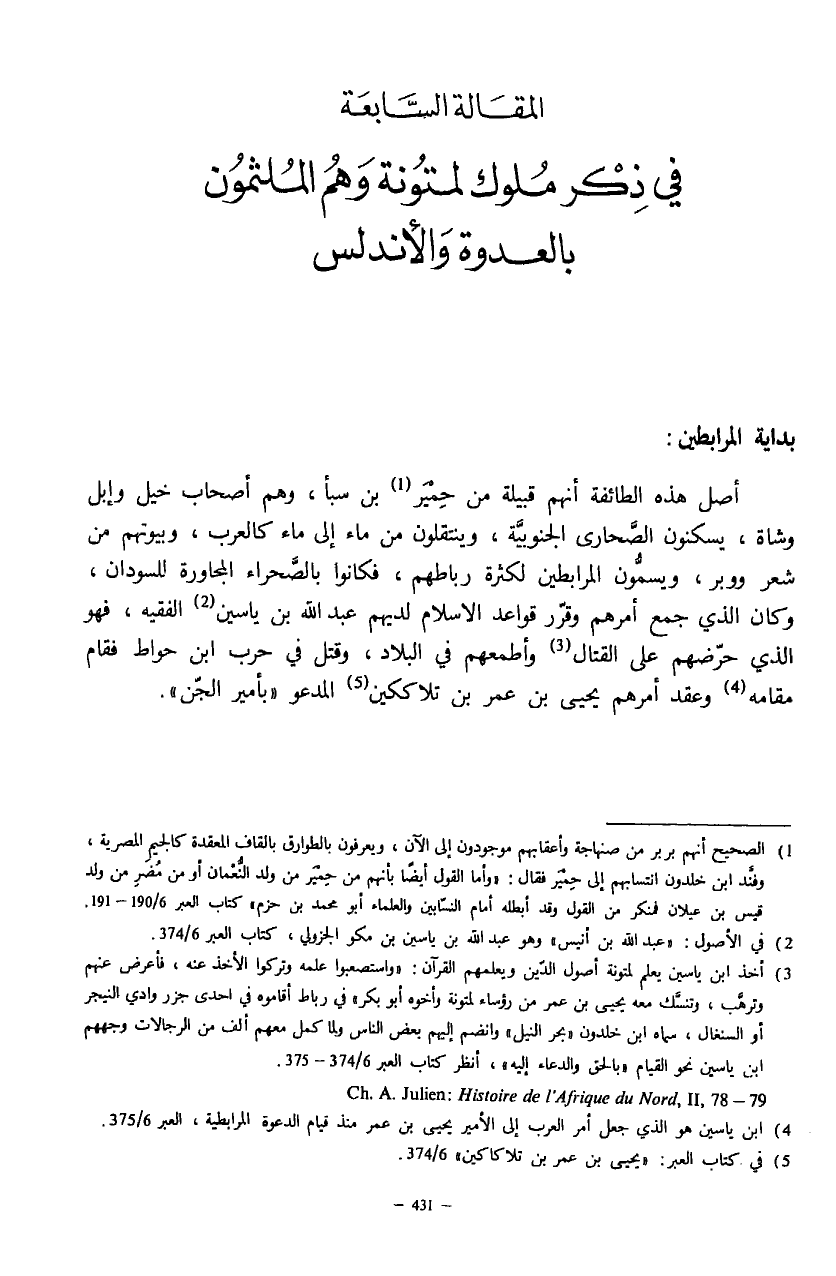 المقالة السَّابعَة
في ذِكْر مُلوك لمتُونة وَهُمُ المُلثمُون
بالعدوة وَالأندلس
بداية المرابطين :
أصل هذه الطائفة أنهم قبيلة من حِمْيَر(1) بن سبأ ، وهم أصحاب خيل وإبل
وشاة ، يسكنون الصَّحارى الجنوبيَّة ، وينتقلون من ماء إلى ماء كالعرب ، وبيوتهم من
شعر ووبر ، ويسمُّون المرابطين لكثرة رباطهم ، فكانوا بالصَّحراء المجاورة للسودان ،
وكان الذي جمع أمرهم وقرّر قواعد الاسلام لديهم عبد الله بن ياسين(2) الفقيه ، فهو
الذي حرّضهم على القتال(3) وأطمعهم في البلاد ، وقتل في حرب ابن حواط فقام
مقامه(4) وعقد أمرهم يحيى بن عمر بن تلاككين(5) المدعو «بأمير الجّن» .
1) الصحيح أنهم بربر من صنهاجة وأعقابهم موجودون إلى الآن ، ويعرفون بالطوارق بالقاف المعقدة كالجيم المصرية ،
وفنَّد ابن خلدون انتسابهم إلى حِمْيَر فقال : «وأما القول أيضًا بأنهم من حِمْيَر من ولد النُّعْمان أو من مُضَر من ولد
قيس بن عيلان فمنكر من القول وقد أبطله أمام النسّابين والعلماء أبو محمد بن حزم» كتاب العبر 190/6 – 191.
2) في الأصول : «عبد الله بن أنيس» وهو عبد الله بن ياسين بن مكو الجزولي ، كتاب العبر 374/6.
3) أخذ ابن ياسين يعلم لمتونة أصول الدّين ويعلمهم القرآن : «واستصعبوا علمه وتركوا الأخذ عنه ، فأعرض عنهم
وترهَّب ، وتنسَّك معه يحيى بن عمر من رؤساء لمتونة وأخوه أبو بكر» في رباط أقاموه في احدى جزر وادي النيجر
أو السنغال ، سماه ابن خلدون «بحر النيل» وانضم إليهم بعض الناس ولما كمل معهم ألف من الرجالات وجههم
ابن ياسين نحو القيام «بالحق والدعاء إليه» ، أنظر كتاب العبر 374/6 – 375 .
Ch. A. Julien: Histoire de l'Afrique du Nord, II, 78 – 79
4) ابن ياسين هو الذي جعل أمر العرب إلى الأمير يحيى بن عمر منذ قيام الدعوة المرابطية ، العبر 375/6.
5) في كتاب العبر: «يحيى بن عمر بن تلاكاكين» 374/6 .
– 431 –